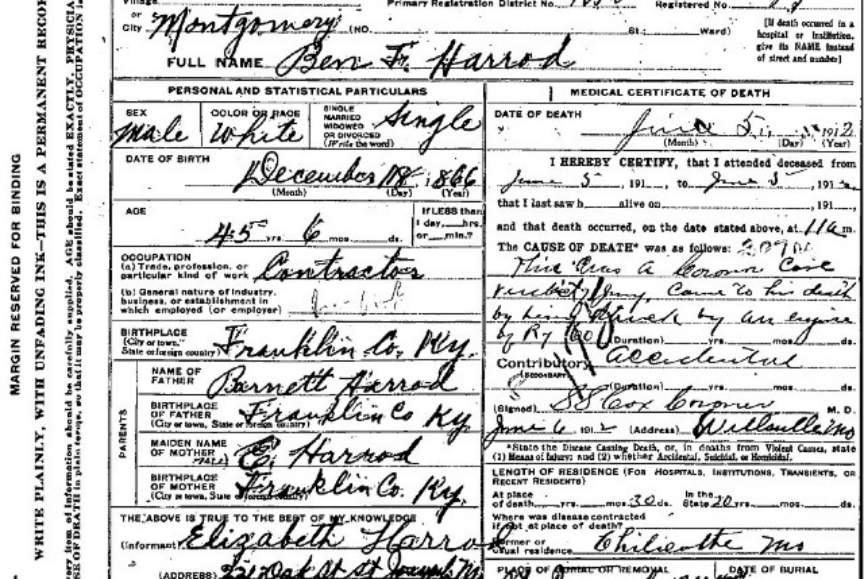 Village
or
City Montgomery (NO. St.; Ward)
Primary Registration District No. Registered No.
[If death occurred in a
hospital or institution,
give its NAME instead
of street and number]
FULL NAME Ben F. Harrod
PERSONAL AND STATISTICAL PARTICULARS
SEX
Male
COLOR OR RACE
White
SINGLE
MARRIED
WIDOWED
OR DIVORCED
(Write the word)
Single
DATE OF BIRTH
December 18 1866
(Month) (Day) (Year)
AGE
45 yrs. 6 mos. ds.
If LESS than
1 day, hrs.
or min.?
OCCUPATION
(a) Trade, profession, or
particular kind of work Contractor
(b) General nature of industry,
business, or establishment in
which employed (or employer)
BIRTHPLACE
(City or town,
State or foreign country) Franklin Co, Ky.
PARENTS
NAME OF
FATHER Barnett Harrod
BIRTHPLACE
OF FATHER
(City or town, State or foreign country) Franklin Co Ky.
MAIDEN NAME
OF MOTHER E. Harrod
BIRTHPLACE
OF MOTHER
(City or town, State or foreign country) Franklin Co. Ky.
THE ABOVE IS TRUE TO THE BEST OF MY KNOWLEDGE
(Informant) Elizabeth Harrod
(ADDRESS) Oak St St Joseph Mo
MEDICAL CERTIFICATE OF DEATH
DATE OF DEATH
June 5, 1912
(Month) (Day) (Year)
I HEREBY CERTIFY, that I attended deceased from
June 5, 191 , to June 5, 1912
that I last saw h alive on , 191 ,
and that death occurred, on the date stated above, at 11 a m.
The CAUSE OF DEATH* was as follows:
This Was A Coroner Case
verdict of Jury, Came to his death
by being struck by an engine
by Ry Co (Duration) yrs. mos. ds.
Contributory Accidental
(SECONDARY)
(Duration) yrs. mos. ds.
(Signed) SS Cox Coroner M. D.
June 6, 1912 (Address) Wellsville Mo
*State the Disease Causing Death, or, in deaths from Violent Causes, state
(1) Means of Injury; and (2) whether Accidental, Suicidal, or Homicidal.
LENGTH OF RESIDENCE (FOR HOSPITALS, INSTITUTIONS, TRANSIENTS, OR
RECENT RESIDENTS)
At place
of death yrs. mos. 30 ds.
In the
State 20 yrs. mos. ds.
Where was disease contracted
if not at place of death?
Former or
usual residence Chilicothe Mo
PLACE OF BURIAL OR REMOVAL DATE OF BURIAL
MARGIN RESERVED FOR BINDING
WRITE PLAINLY, WITH UNFADING INK—THIS IS A PERMANENT RECOR
very item of information should be carefully supplied. AGE should be stated EXACTLY. PHYSICIA
SE OF DEATH in plain terms, so that it may be properly classified. Exact statement of OCCUPATION is